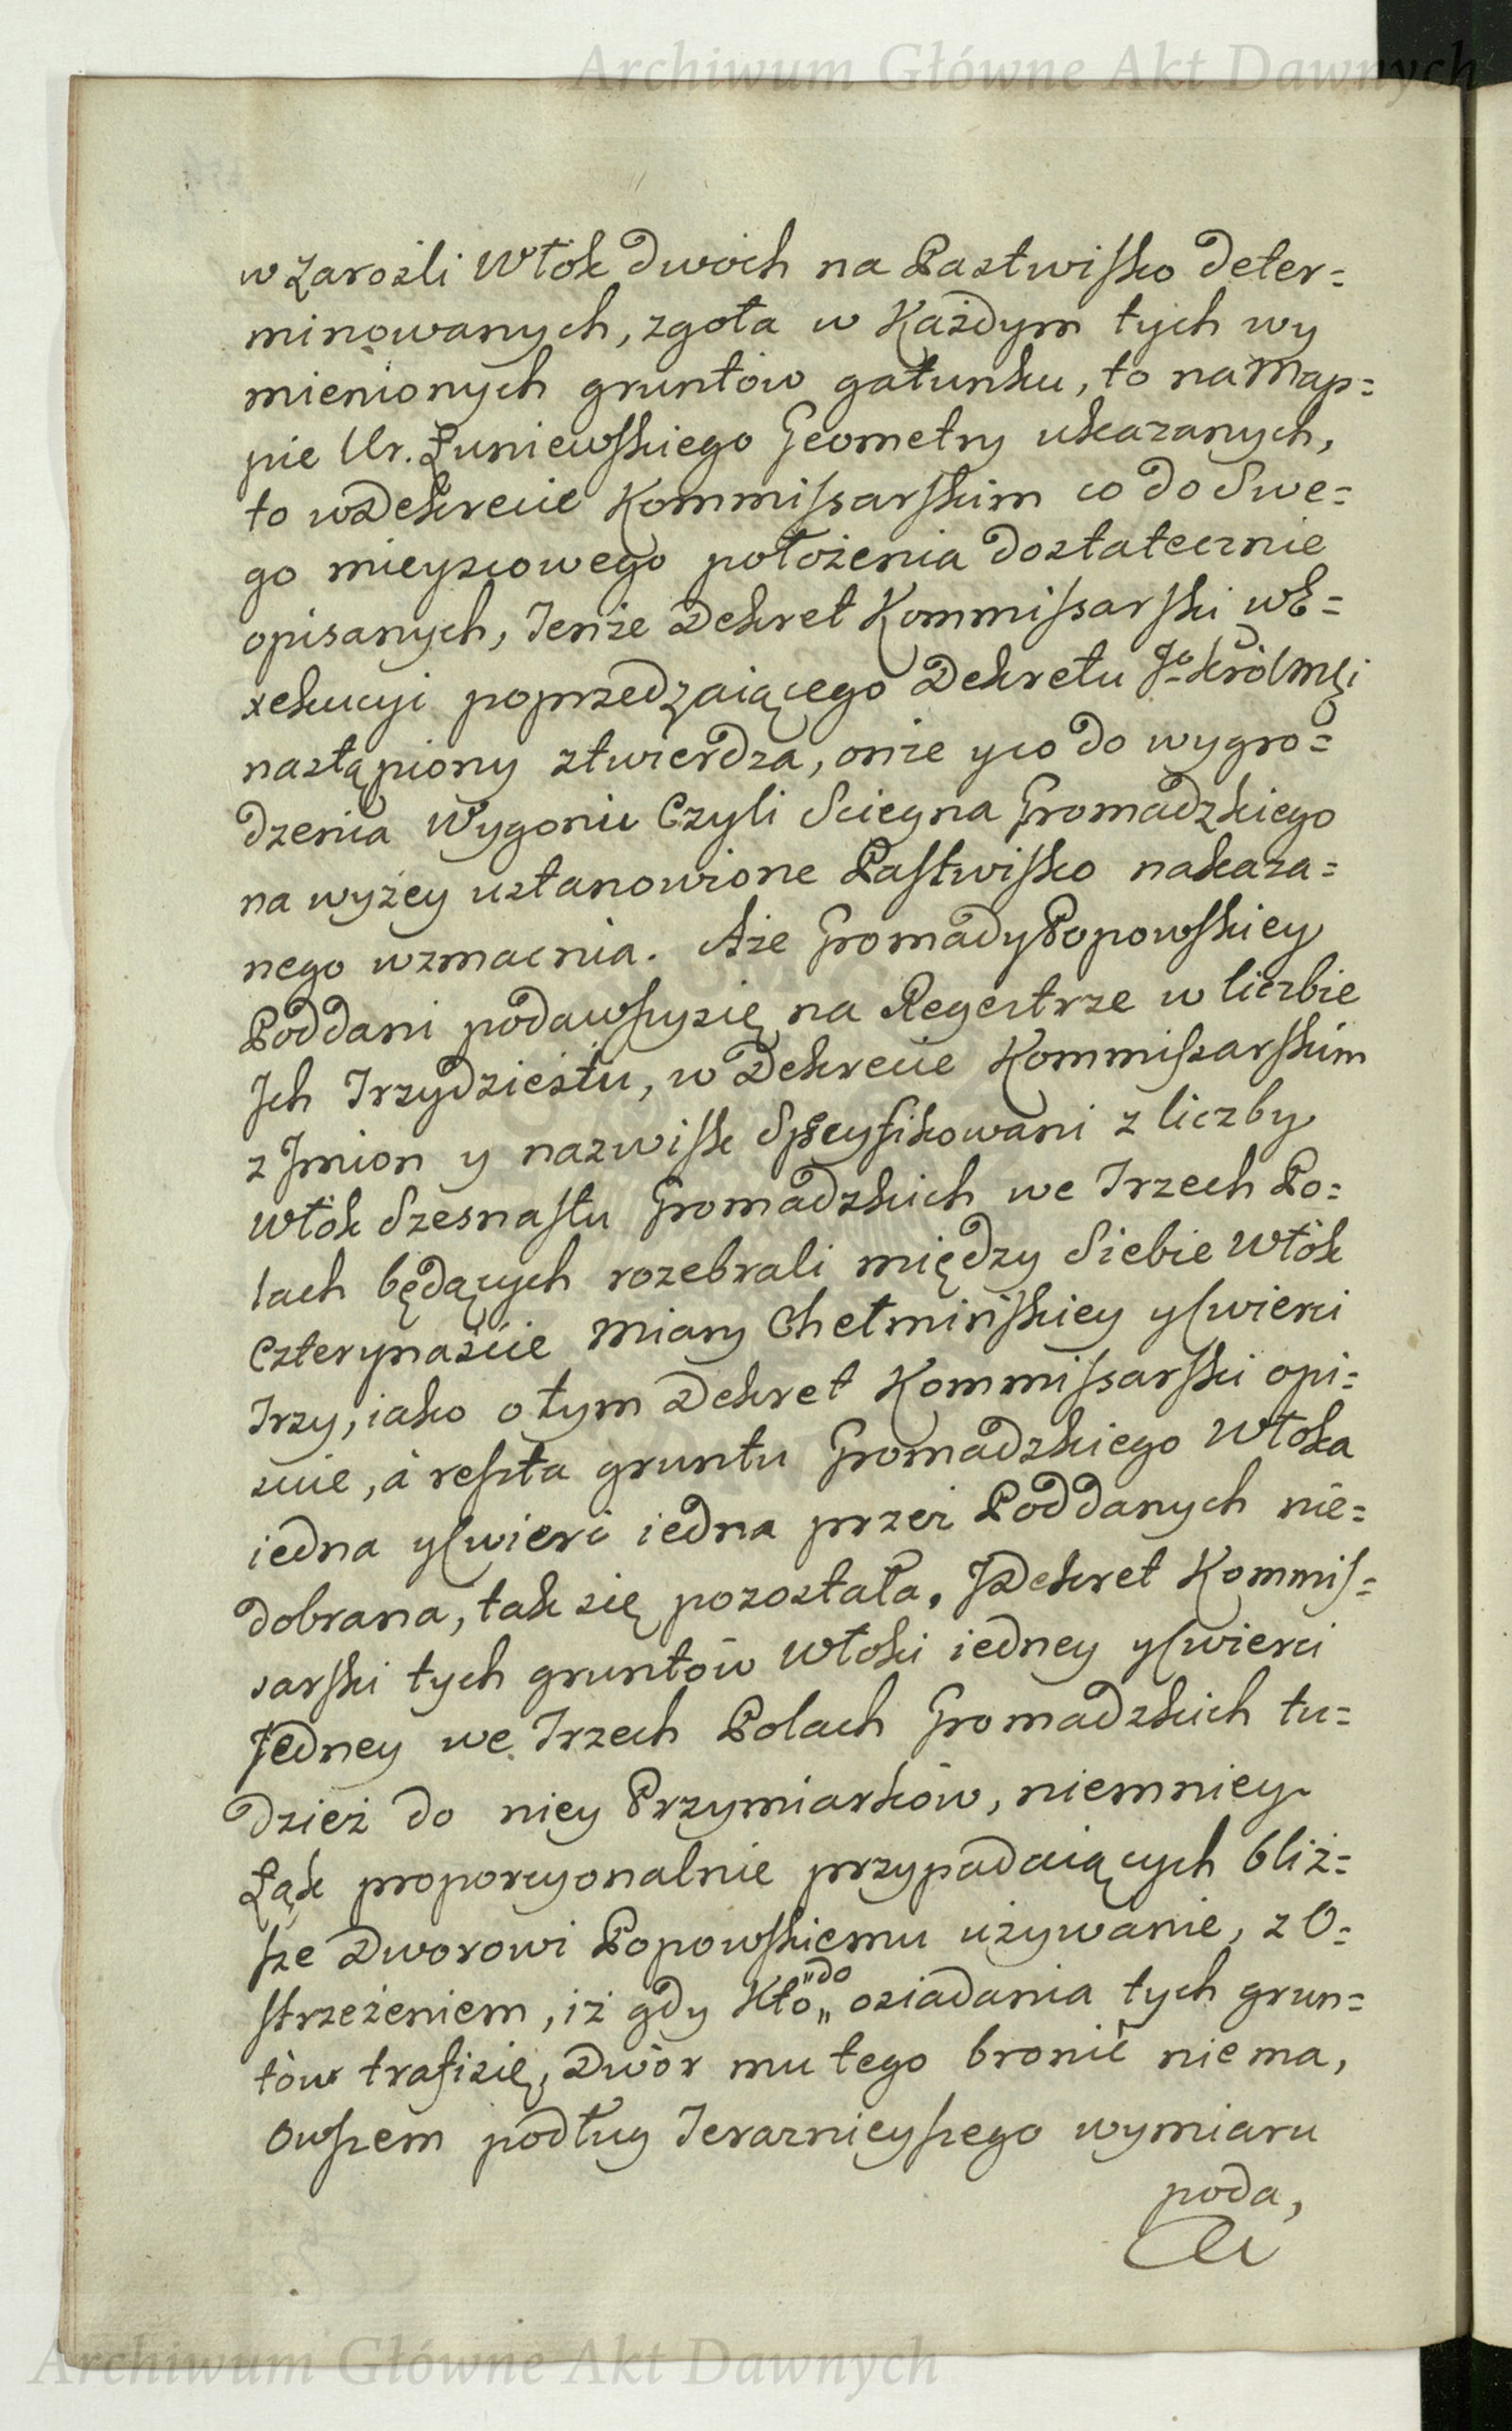 Archiwum Główne Akt Dawnych
w Zarośli Włók dwóch na Pastwisko deter=
minowanych, zgoła w Każdym tych wy
mienionych gruntów gatunku, to na Map=
pie Ur. Łuniewskiego Geometry ukazanych,
to w Dekrecie Kommissarskim co do Swe=
go mieyscowego położenia dostatecznie
opisanych, Tenże Dekret Kommissarski w E=
xekucyi poprzedzaiącego Dekretu Jo Król Mci
nastąpiony ztwierdza, onże y co do wygro=
dzenia Wygonu Czyli Sciegna Gromadzkiego
na wyżey ustanowione Pastwisko nakaza=
nego wzmacnia. Aże Gromady Popowskiey
Poddani podawszy się na Regestrze w liczbie
Ich Trzydziestu, w Dekrecie Kommissarskim
z Imion y nazwisk Specyfikowani z liczby
Włók Szesnastu Gromadzkich we Trzech Po=
lach będących rozebrali między Siebie Włók
Czterynaście Miary Chełmińskiey y ćwierci
Trzy, iako o tym Dekret Kommissarski opi=
suie, à reszta gruntu Gromadzkiego Włoka
iedna y ćwierć iedna przez Poddanych nie=
dobrana, tak się pozostała, Dekret Kommis=
sarski tych gruntów Włoki iedney y ćwierci
Jedney we Trzech Polach Gromadzkich tu=
dzież do niey Przymiarków, niemniey
Łąk proporcyonalnie przypadaiących bliż=
sze Dworowi Popowskiemu używanie, z O=
strzeżeniem, iż gdy Kto „do„ osiadania tych grun=
tów trafi się, Dwór mu tego bronić nie ma,
Owszem podług Teraznieyszego wymiaru
poda,
Archiwum Główne Akt Dawnych